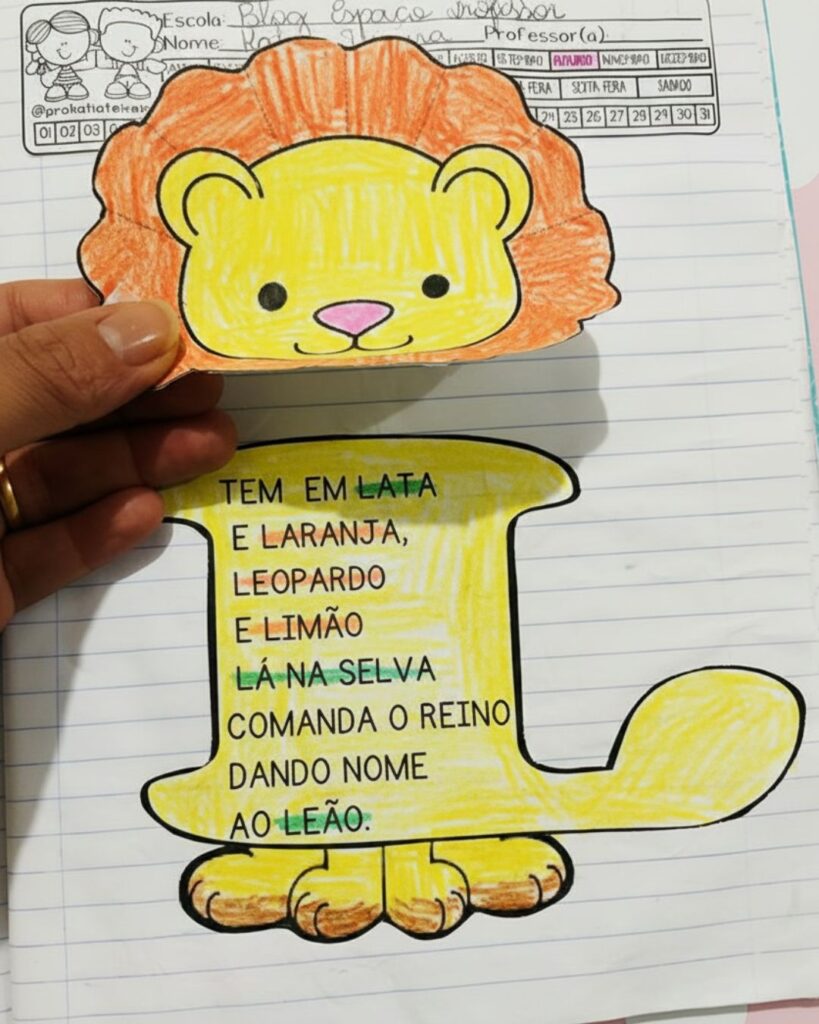 Escola: Blog Espaço Professor
Nome: Professor(a):
SETEMBRO OUTUBRO NOVEMBRO DEZEMBRO
FEIRA SEXTA FEIRA SÁBADO
@prokatiateixeira
01 02 03 24 25 26 27 28 29 30 31
TEM EM LATA
E LARANJA,
LEOPARDO
E LIMÃO
LÁ NA SELVA
COMANDA O REINO
DANDO NOME
AO LEÃO.